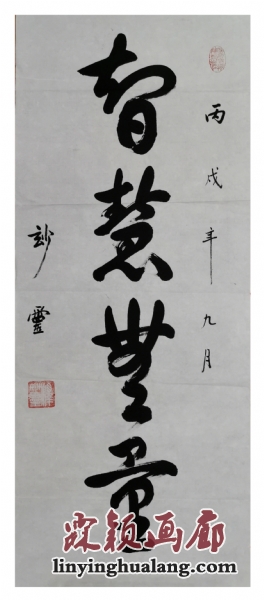 丙戌年九月
智慧無量
妙靈
霖颖画廊
linyinghualang.com